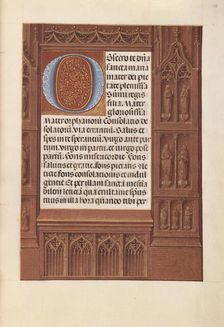 Obsecro te dña
sancta maria
mater dei pie
tate plenissi
ma Summi regis
filia. Mater
gloriosissi
Mater orphanorũ Consolatio de
solatorũ Via errantiũ. Salus et
spes in te sperantiũ. Virgo ante partum
Virgo in partu. et virgo post
partũ. Fons misericordie. Fons
salutis et gratie. fons pietatis et
leticie. fons consolationis et indul
gentie Et per illam sanctã ineffa
bilem leticiã qua exultauit spiri
tus tuus in illa hora quando tibi per